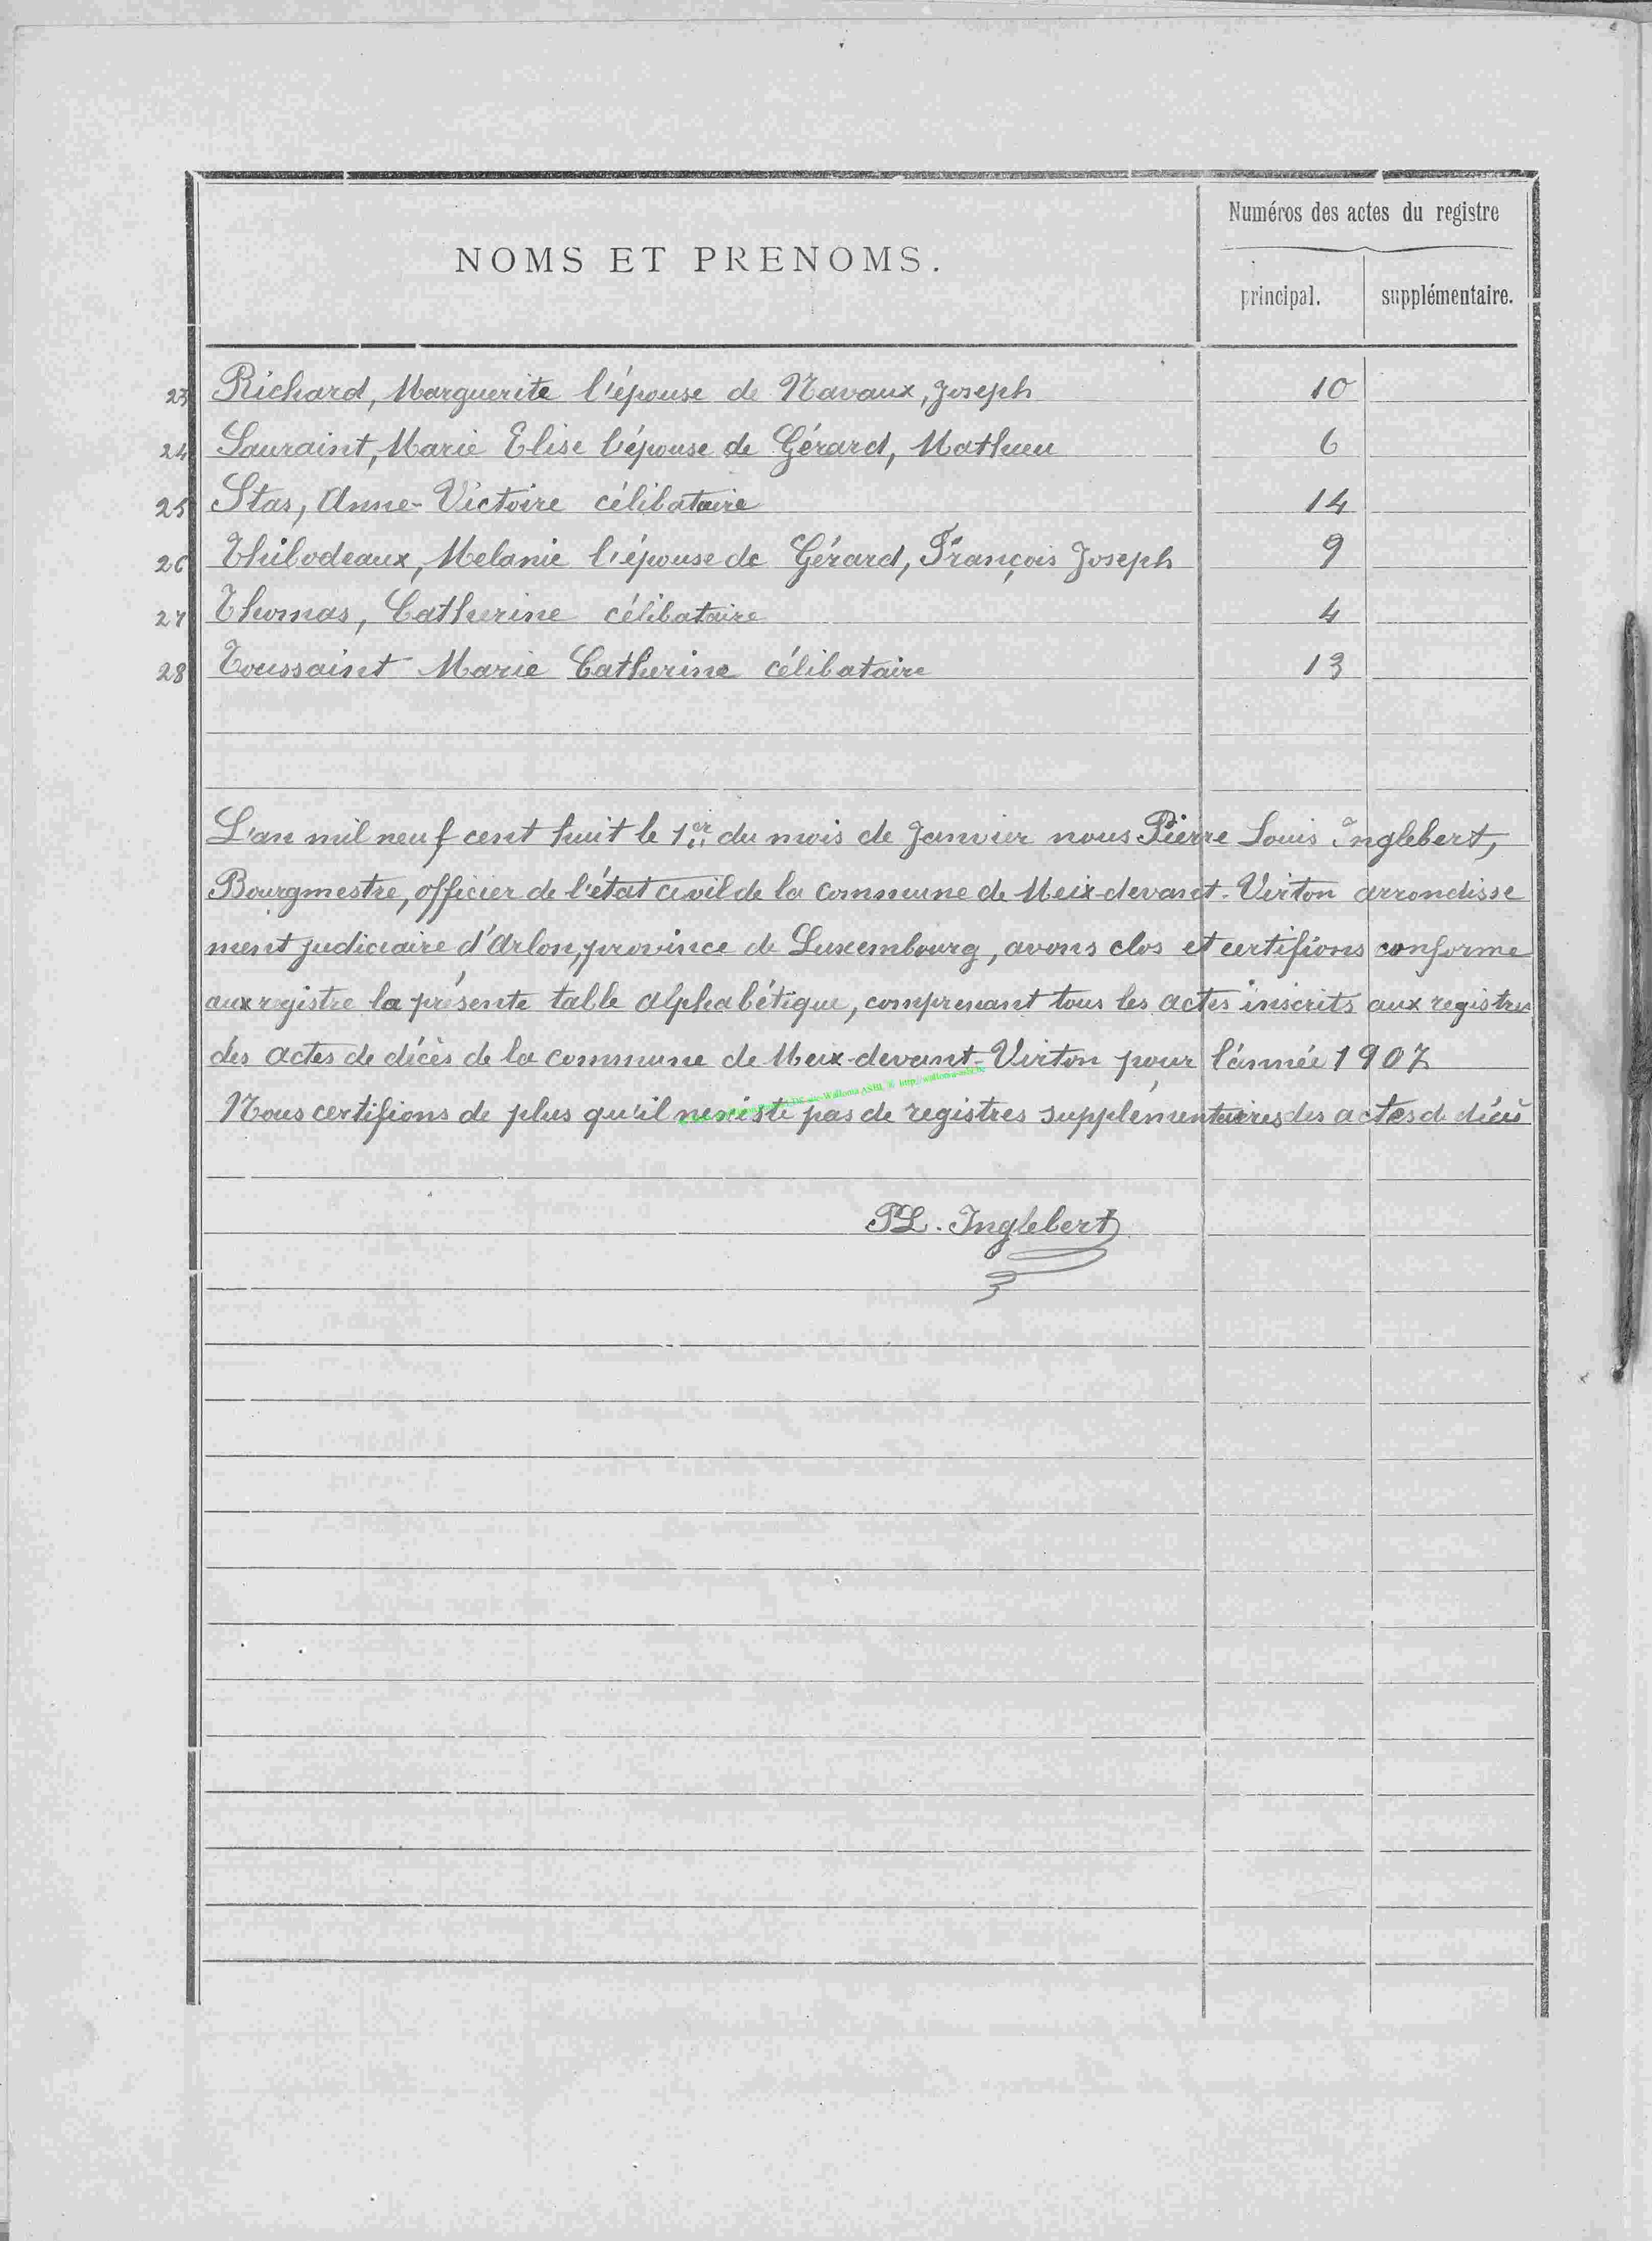 Numéros des actes du registre
NOMS ET PRENOMS.
principal. supplémentaire.
23 Richard, Marguerite l'épouse de Navaux, Joseph 10
24 Sauraint, Marie Elise l'épouse de Gérard, Mathieu 6
25 Stas, Anne-Victoire célibataire 14
26 Thibodeaux, Melanie l'épouse de Gérard, François Joseph 9
27 Thomas, Catherine célibataire 4
28 Toussaint Marie Catherine célibataire 13
L'an mil neuf cent huit le 1er du mois de Janvier nous Pierre Louis Inglebert,
Bourgmestre, officier de l'état civil de la commune de Meix-devant-Virton arrondisse
ment judiciaire d'Arlon, province de Luxembourg, avons clos et certifions conforme
aux registre la présente table alphabétique, comprenant tous les actes inscrits aux registres
des actes de décès de la commune de Meix-devant-Virton pour l'année 1907
Nous certifions de plus qu'il nexiste pas de registres supplémentaires des actes de décès
PL. Inglebert